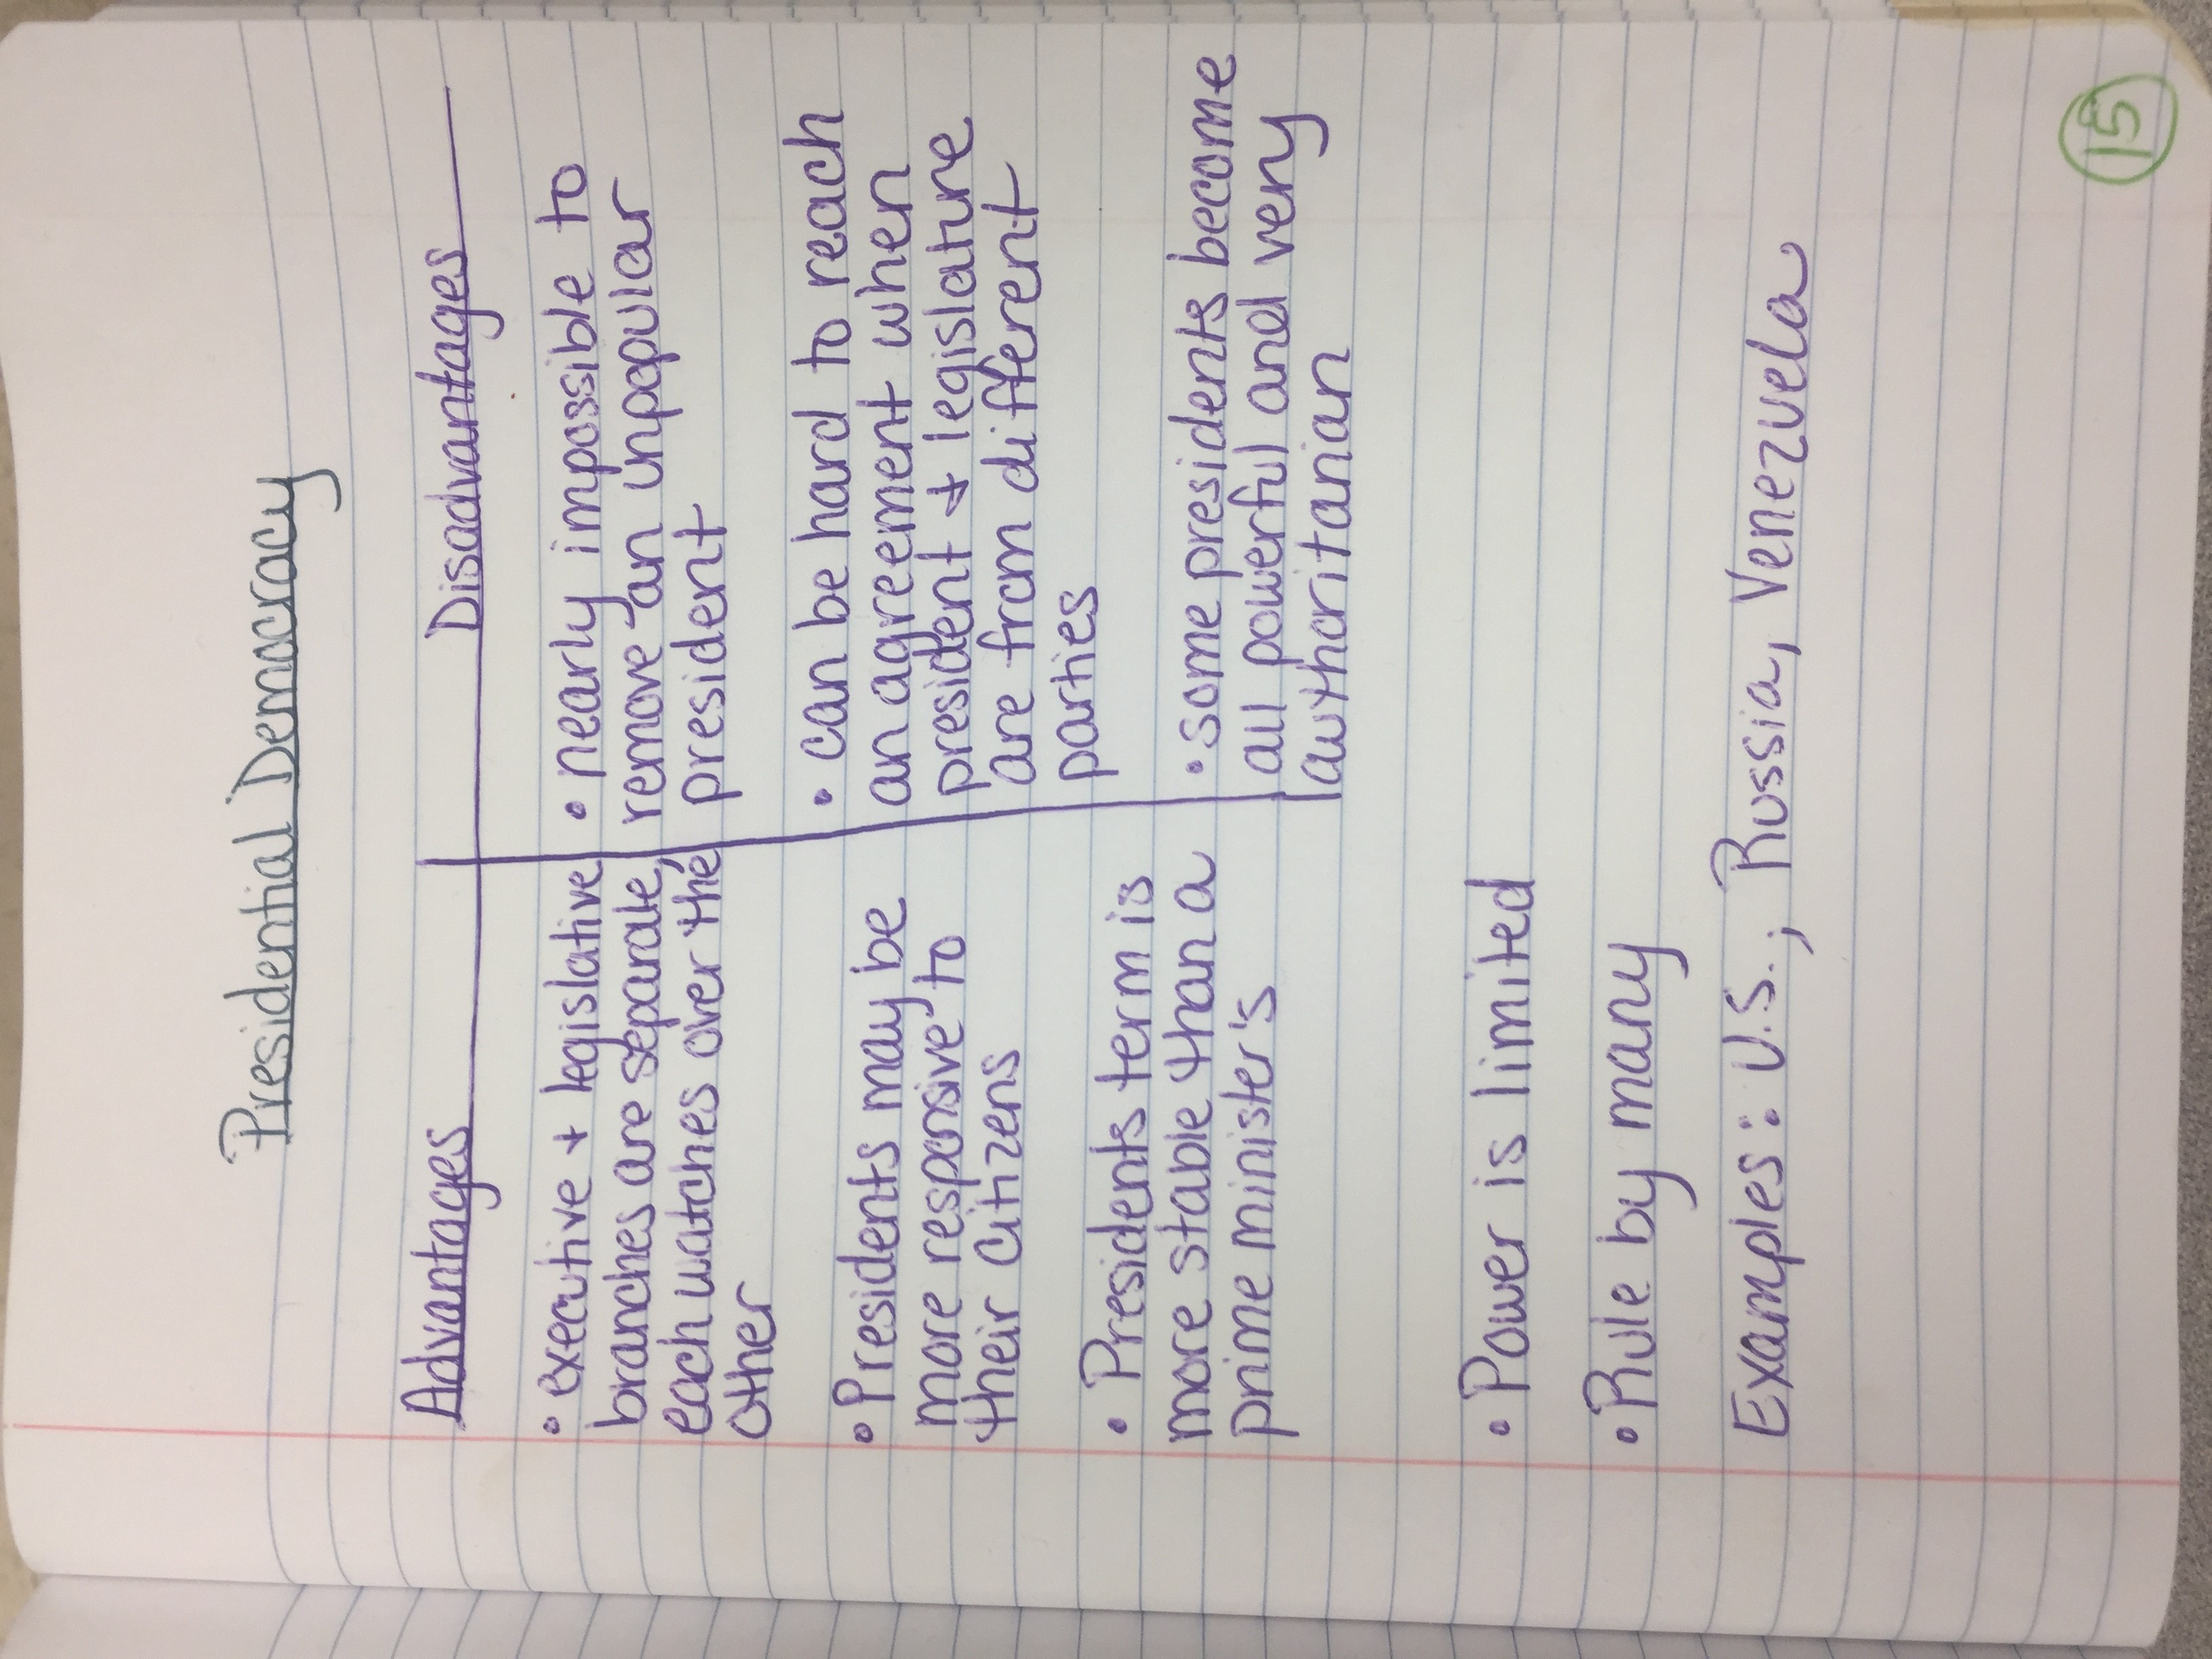 Presidential Democracy
Advantages
• executive + legislative
branches are separate,
each watches over the
other
• Presidents may be
more responsive to
their citizens
• Presidents term is
more stable than a
prime minister's
Disadvantages
• nearly impossible to
remove an unpopular
president
• can be hard to reach
an agreement when
president + legislature
are from different
parties
• some presidents become
all powerful and very
authoritarian
• Power is limited
• Rule by many
Examples: U.S., Russia, Venezuela
15